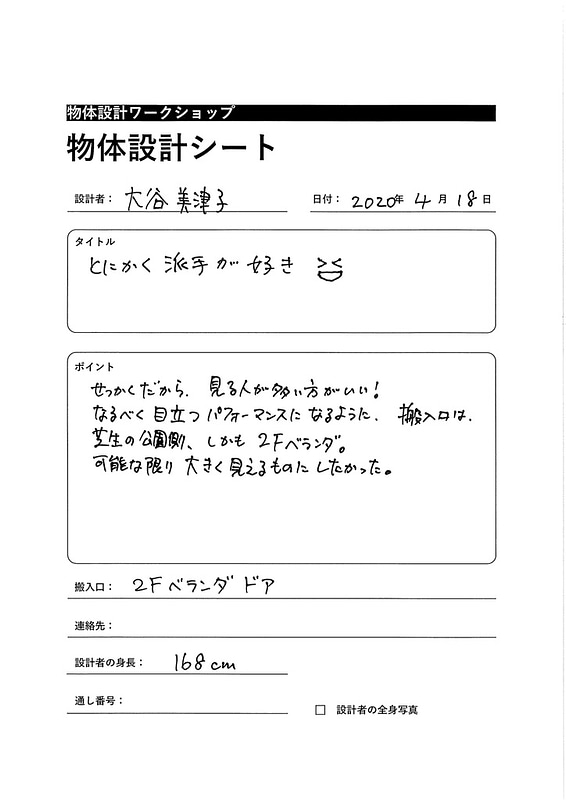 物体設計ワークショップ
物体設計シート
設計者： 大谷 美津子 日付： 2020年 4月 18日
タイトル
とにかく 派手が好き
ポイント
せっかくだから、見る人が多い方がいい！
なるべく目立つパフォーマンスになるように、搬入口は、
芝生の公園側、しかも2Fベランダ。
可能な限り大きく見えるものにしたかった。
搬入口： 2Fベランダ ドア
連絡先：
設計者の身長： 168cm
通し番号：
□ 設計者の全身写真